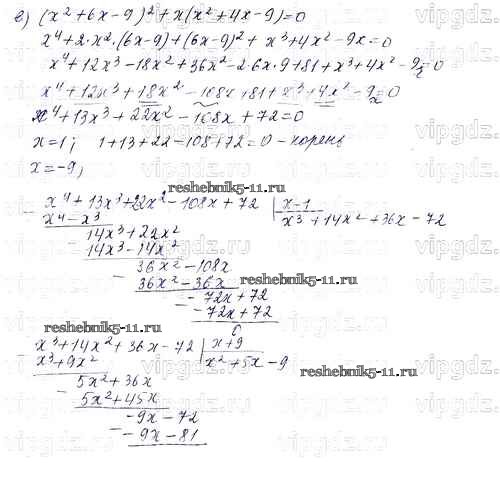 е) (x²+6x-9)²+x(x²+4x-9)=0
x⁴+2·x²·(6x-9)+(6x-9)²+x³+4x²-9x=0
x⁴+12x³-18x²+36x²-2·6x·9+81+x³+4x²-9x=0
x⁴+12x³+18x²-108x+81+x³+4x²-9x=0
x⁴+13x³+22x²-108x+72=0
x=1; 1+13+22-108+72=0 - корень
x=-9;
reshebnik5-11.ru
x⁴+13x³+22x²-108x+72 | x-1
x⁴-x³ x³+14x²+36x-72
14x³+22x²
14x³-14x²
36x²-108x
36x²-36x reshebnik5-11.ru
-72x+72
-72x+72
0
reshebnik5-11.ru
x³+14x²+36x-72 | x+9
x³+9x² x²+5x-9
reshebnik5-11.ru
5x²+36x
5x²+45x
-9x-72
-9x-81
vipgdz.ru